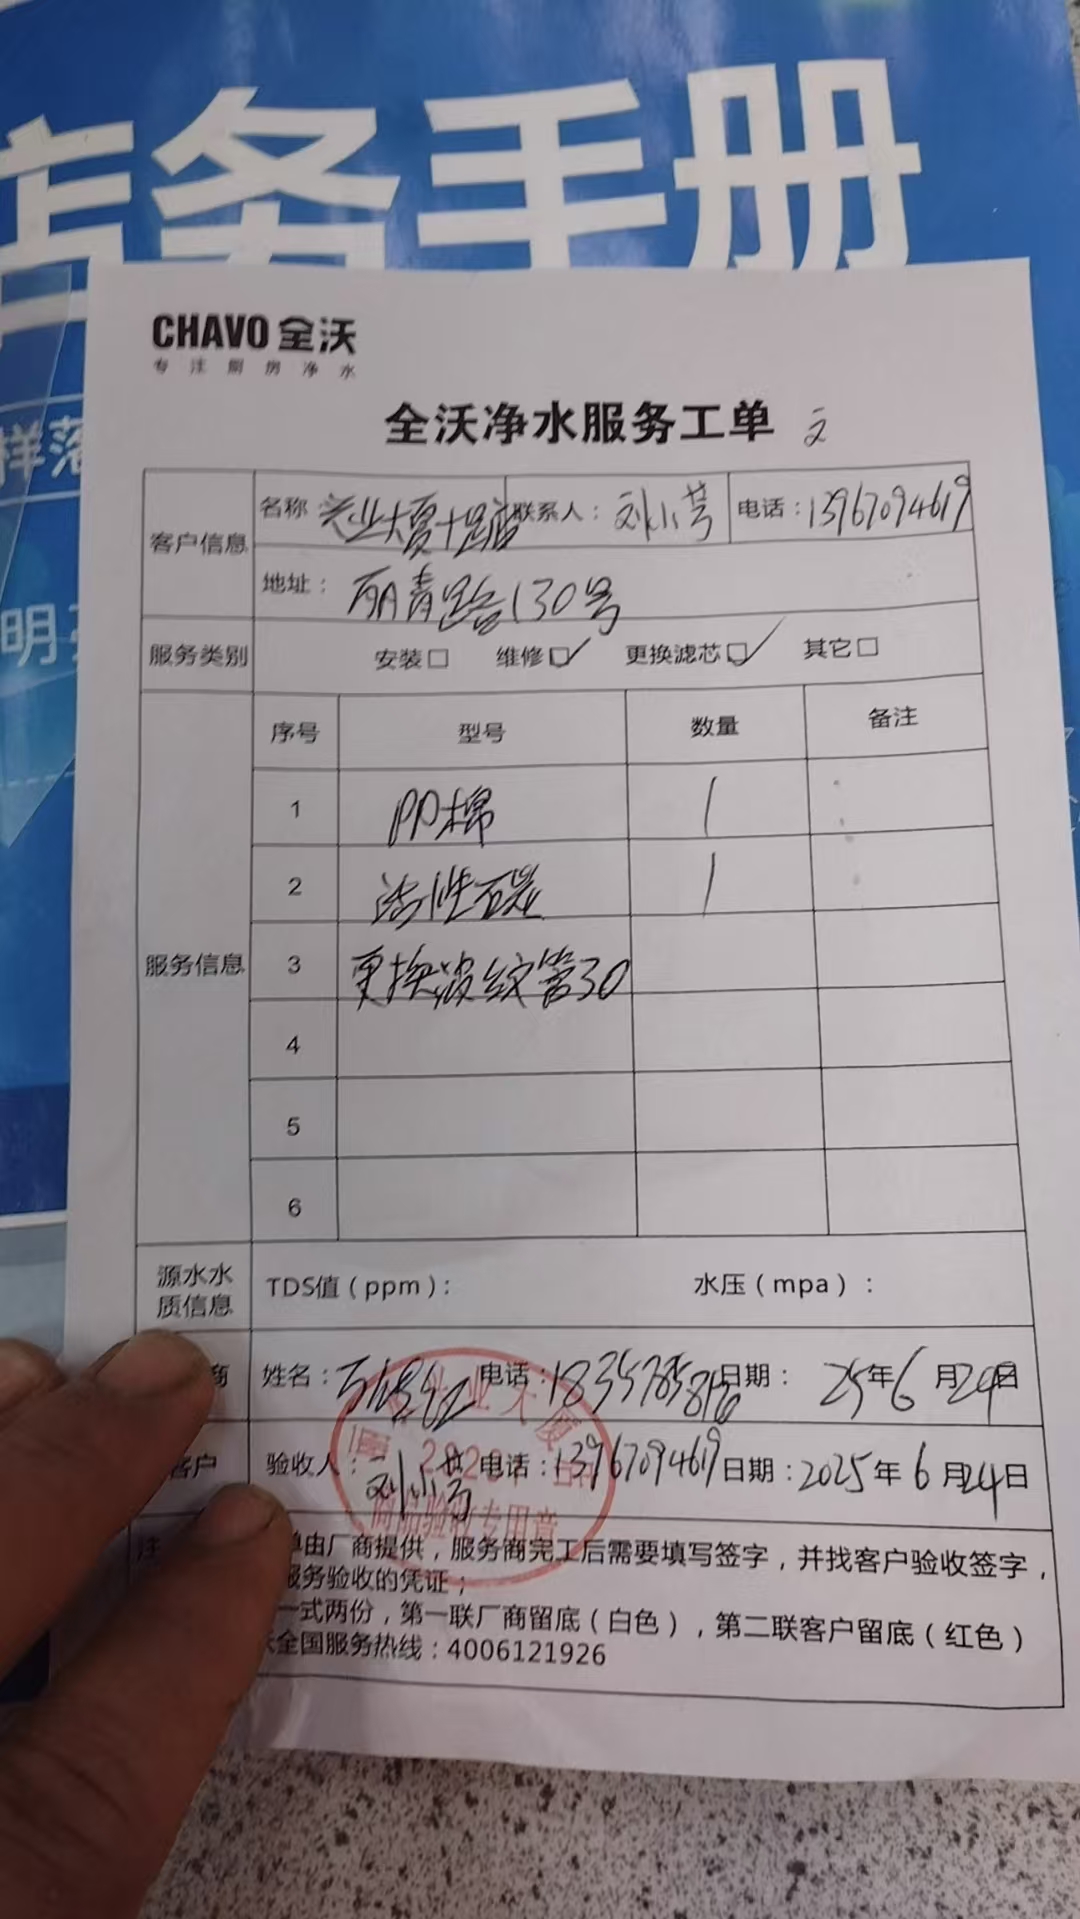 务手册
样落
明
CHAVO 全沃
专注厨房净水
全沃净水服务工单
客户信息 名称 兴业大厦十路店 联系人：刘小芳 电话：13967094619
地址：丽青路130号
服务类别 安装□ 维修☑ 更换滤芯☑ 其它□
服务信息
序号 型号 数量 备注
1 PP棉 1
2 活性碳 1
3 更换波纹管30
4
5
6
源水水质信息 TDS值（ppm）： 水压（mpa）：
商 姓名： 电话：18357858 日期：25年6月24日
客户 验收人：刘小芳 电话：13967094619 日期：2025年6月24日
业大厦
2020
商品验收专用章
注
单由厂商提供，服务商完工后需要填写签字，并找客户验收签字，
服务验收的凭证；
一式两份，第一联厂商留底（白色），第二联客户留底（红色）
全国服务热线：4006121926